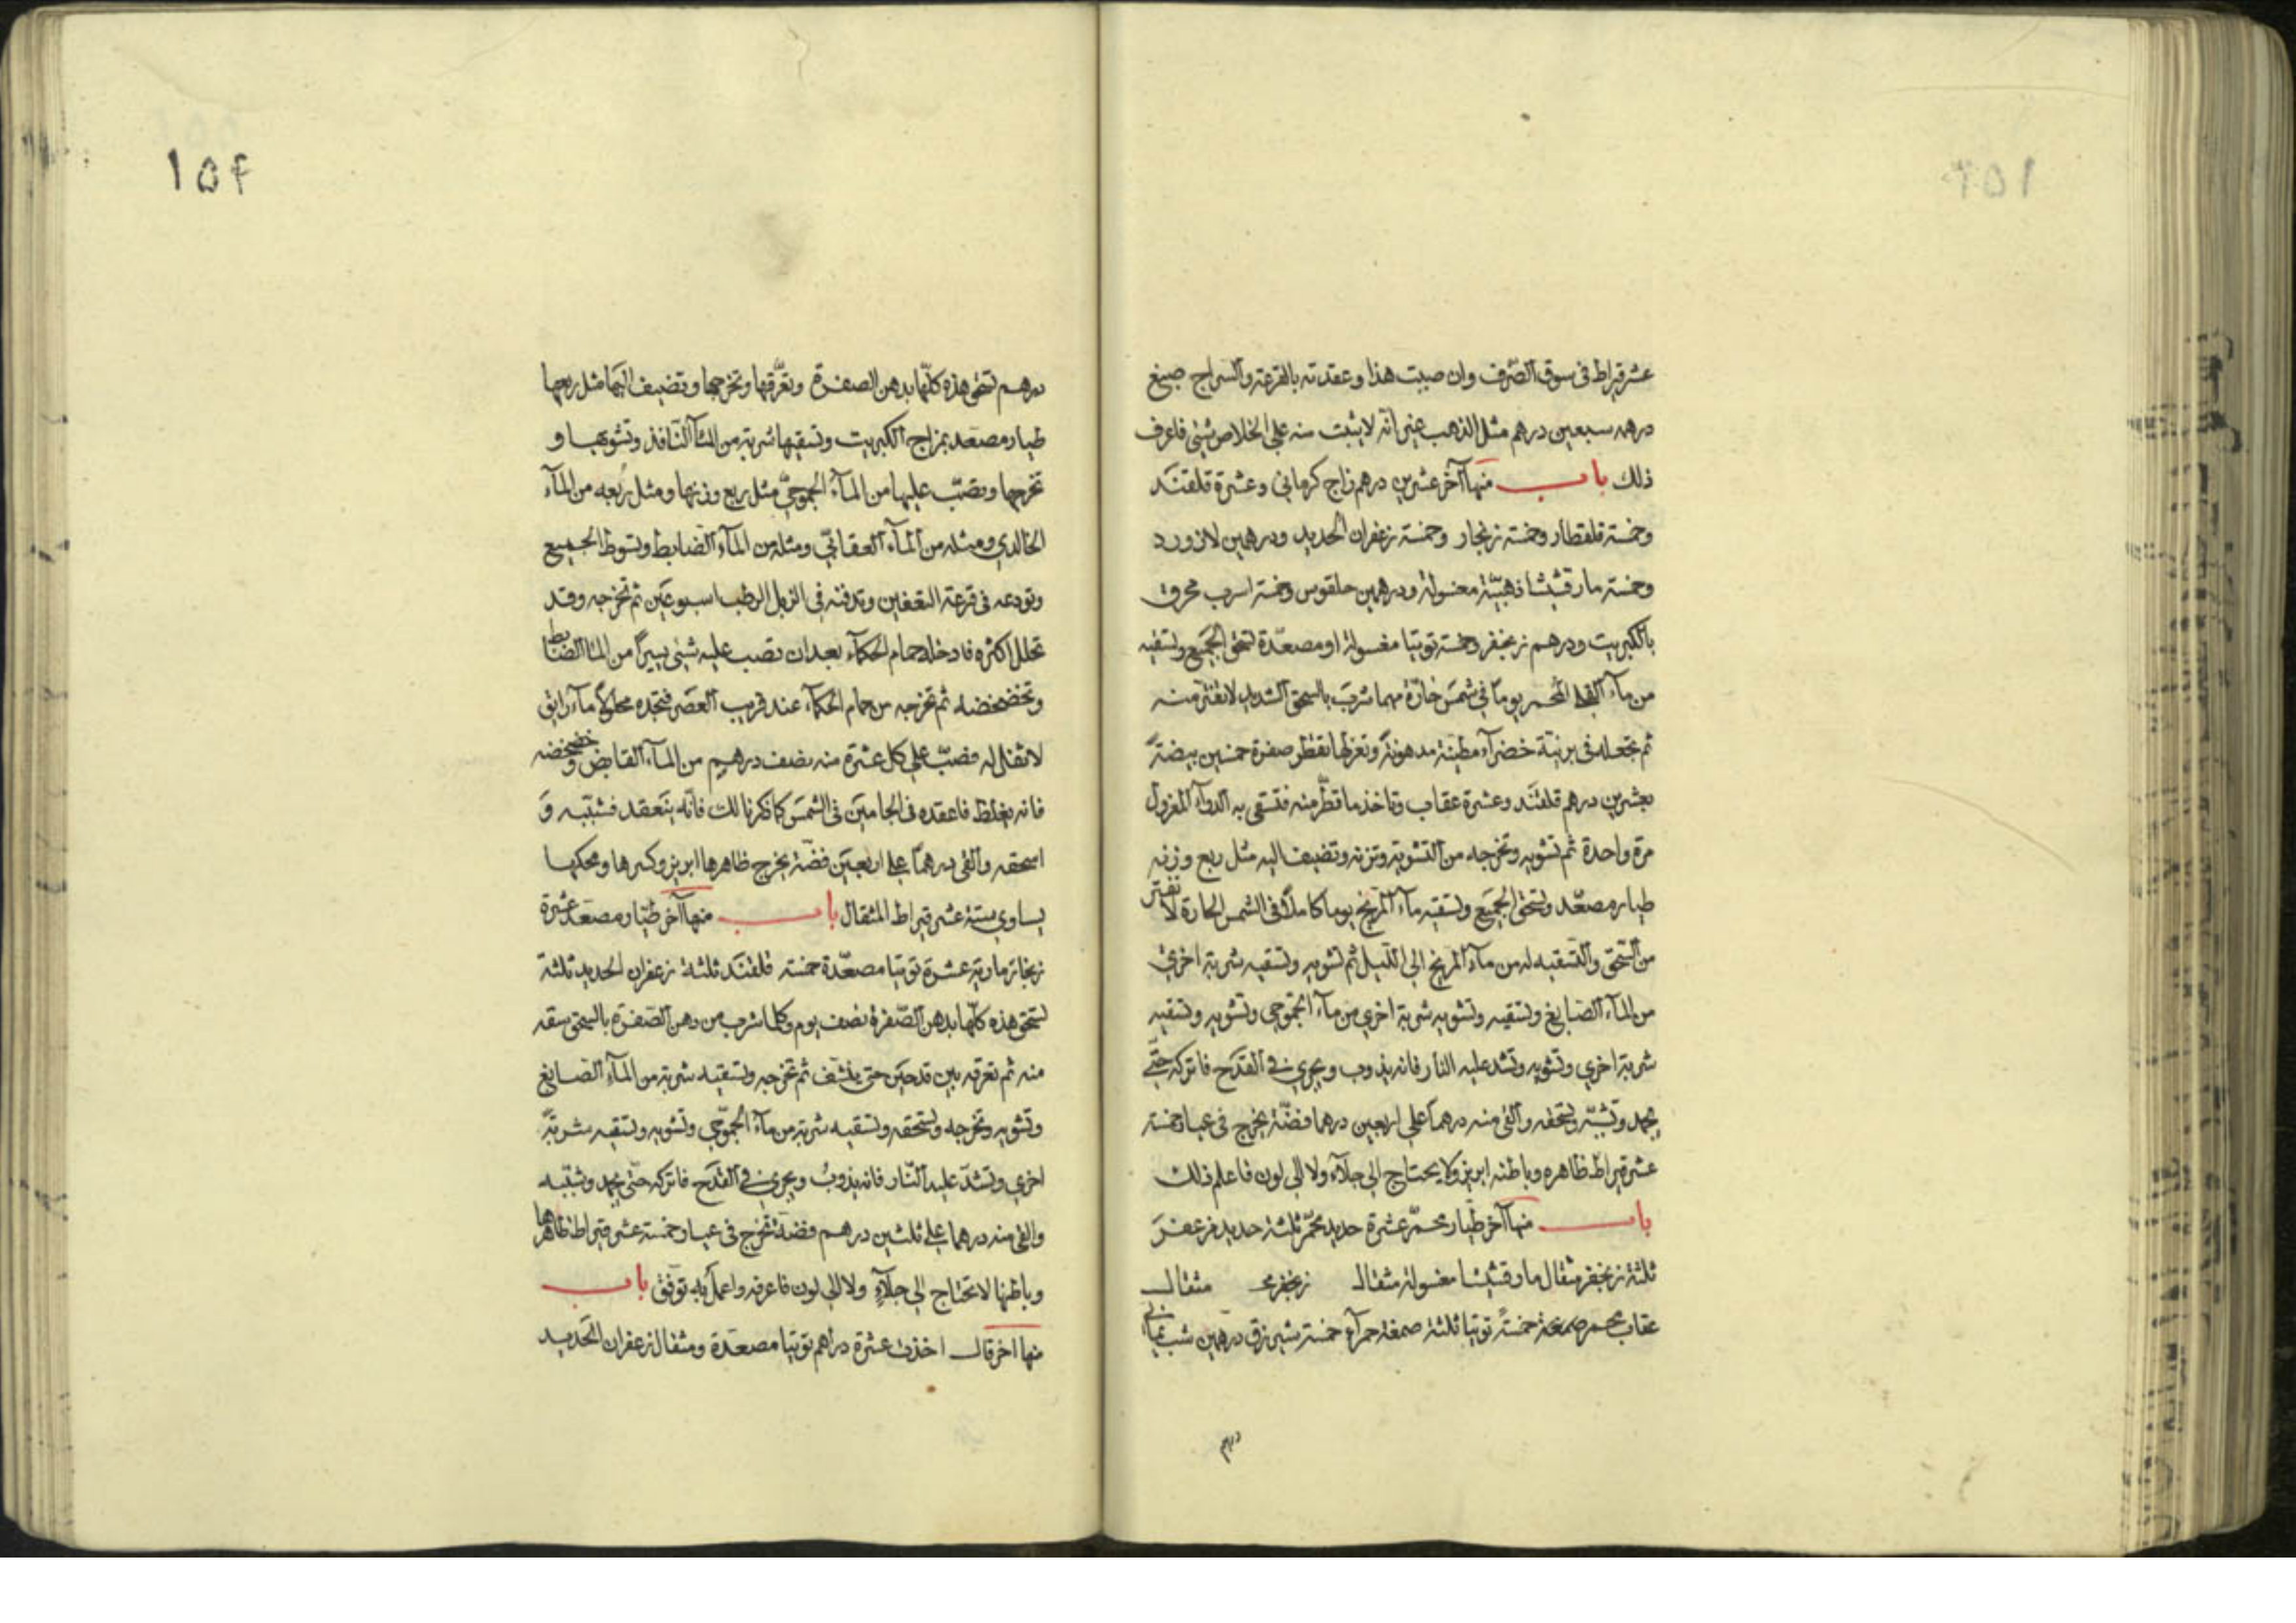 عشر قيراط في سوق الصّرف وان صببت هذا وعقدته بالقرعة والسراج صبغ
درهمه سبعين درهم مثل الذهب غير انّه لا يثبت منه على الخلاص شئ فاعرف
ذلك باب منها آخر عشرين درهم زاج كرماني وعشرة قلقنند
وخمسة قلقطار وخمسة زنجار وخمسة زعفران الحديد ودرهمين لازورد
وخمسة مارقشيشا ذهبيّة مغسولة ودرهمين حلقوس وخمسة اسرب محرق
بالكبريت ودرهم زنجفر وخمسة توتيا مغسولة او مصعّدة تسحق الجميع وتسقيه
من ماء المحمر يوماً في شمس حارّة مهما شرب بالسحق الشديد لا تفتر منه
ثم تجعله في برنيّة خضراء مطيّنة مدهونة وتعزلها تقطر صفرة خمسين بيضة
بعشرين درهم قلقنند وعشرة عقاب وتاخذ ما قطّر منه فتسقي به الدواء المعزول
مرة واحدة ثم تشويه وتخرجه من التشوية وتزنه وتضيف اليه مثل ربع وزنه
طيار مصعّد وتسحق الجميع وتسقيه ماء المريخ يوما كاملاً في الشمس الحارة لا تفتر
من السّحق والتّسقية له من ماء المريخ الى اللّيل ثم تشويه وتسقيه شربة اخرى
من الماء الصّابغ وتسقيه وتشويه شربة اخرى من ماء الجموحي وتشويه وتسقيه
شربة اخرى وتشويه وتشد عليه النار فانه يذوب ويجري في القدح فاتركه حتّى
يجمد وتشبّبه وتسحقه والق منه درهماً على اربعين درهما فضّة يخرج في عيار خمسة
عشر قيراط ظاهره وباطنه ابريز ولا يحتاج الى جلاء ولا الى لون فاعلم ذلك
باب منها آخر طيار محمّر عشرة حديد محمّر ثلثة حديد مزعفر
ثلثة زنجفر مثقال مارقشيشا مغسولة مثقال مثقال
عقاب محمر خمسة توتيا ثلثة صمغة حمراء خمسة درهمين شب يماني
درهم
١٥٤
درهم تسحق هذه كلّها بدهن الصفرة وتعرّقها وتخرجها وتضيف اليها مثل ربعها
طيار مصعد بمزاج الكبريت وتسقيها شربة من الماء النافذ وتشويها و
تخرجها وتصبّ عليها من الماء الجموحيّ مثل ربع وزنها ومثل رُبعه من الماء
الخالدي ومثله من الماء العقابيّ ومثله من الماء الضابط وتسوط الجميع
وتودعه في قرعة التعفين وتدفنه في الزبل الرطب اسبوعين ثم تخرجه وقد
تحلل اكثره فادخله حمام الحكماء بعد ان تصب عليه شئ يسيراً من الماء الضابط
وتخضخضه ثم تخرجه من حمام الحكماء عند قريب العصر فتجده محلولاً ماء رايق
لا ثفل له فصبّ على كل عشرة منه نصف درهم من الماء القابض وخضخضه
فانه يغلظ فاعقده في الجامين في الشمس كما ذكرنا لك فانّه ينعقد فشبّبه وَ
اسحقه والق درهماً على اربعين فضّة يخرج ظاهرها ابريز وكسرها ومحكها
يساوي ستة عشر قيراط المثقال باب منها آخر طيّار مصعّد عشرة
توتيا مصعّدة خمسة قلقنند ثلثة زعفران الحديد ثلثة
تسحق هذه كلّها بدهن الصّفرة نصف يوم وكلما شرب من دهن الصّفرة بالسحق سقه
منه ثم تعرقه بين قدحين حتى ينشف ثم تخرجه وتسقيه شربة من الماء الصّابغ
وتشويه وتخرجه وتسحقه وتسقيه شربة من ماء الجموّحي وتشويه وتسقيه شربةً
اخرى وتشدّ عليه النّار فانه يذوبُ ويجري في القدح فاتركه حتّى يجمد وشبّبه
والق منه درهما على ثلثين درهم فضة تخرج في عيار خمسة عشر قيراط ظاهرها
وباطنها لا تحتاج الى جلاءٍ ولا الى لون فاعرفه واعمل به توفق باب
منها اخر قال اخذت عشرة دراهم توتيا مصعّدة ومثقال زعفران الحديد